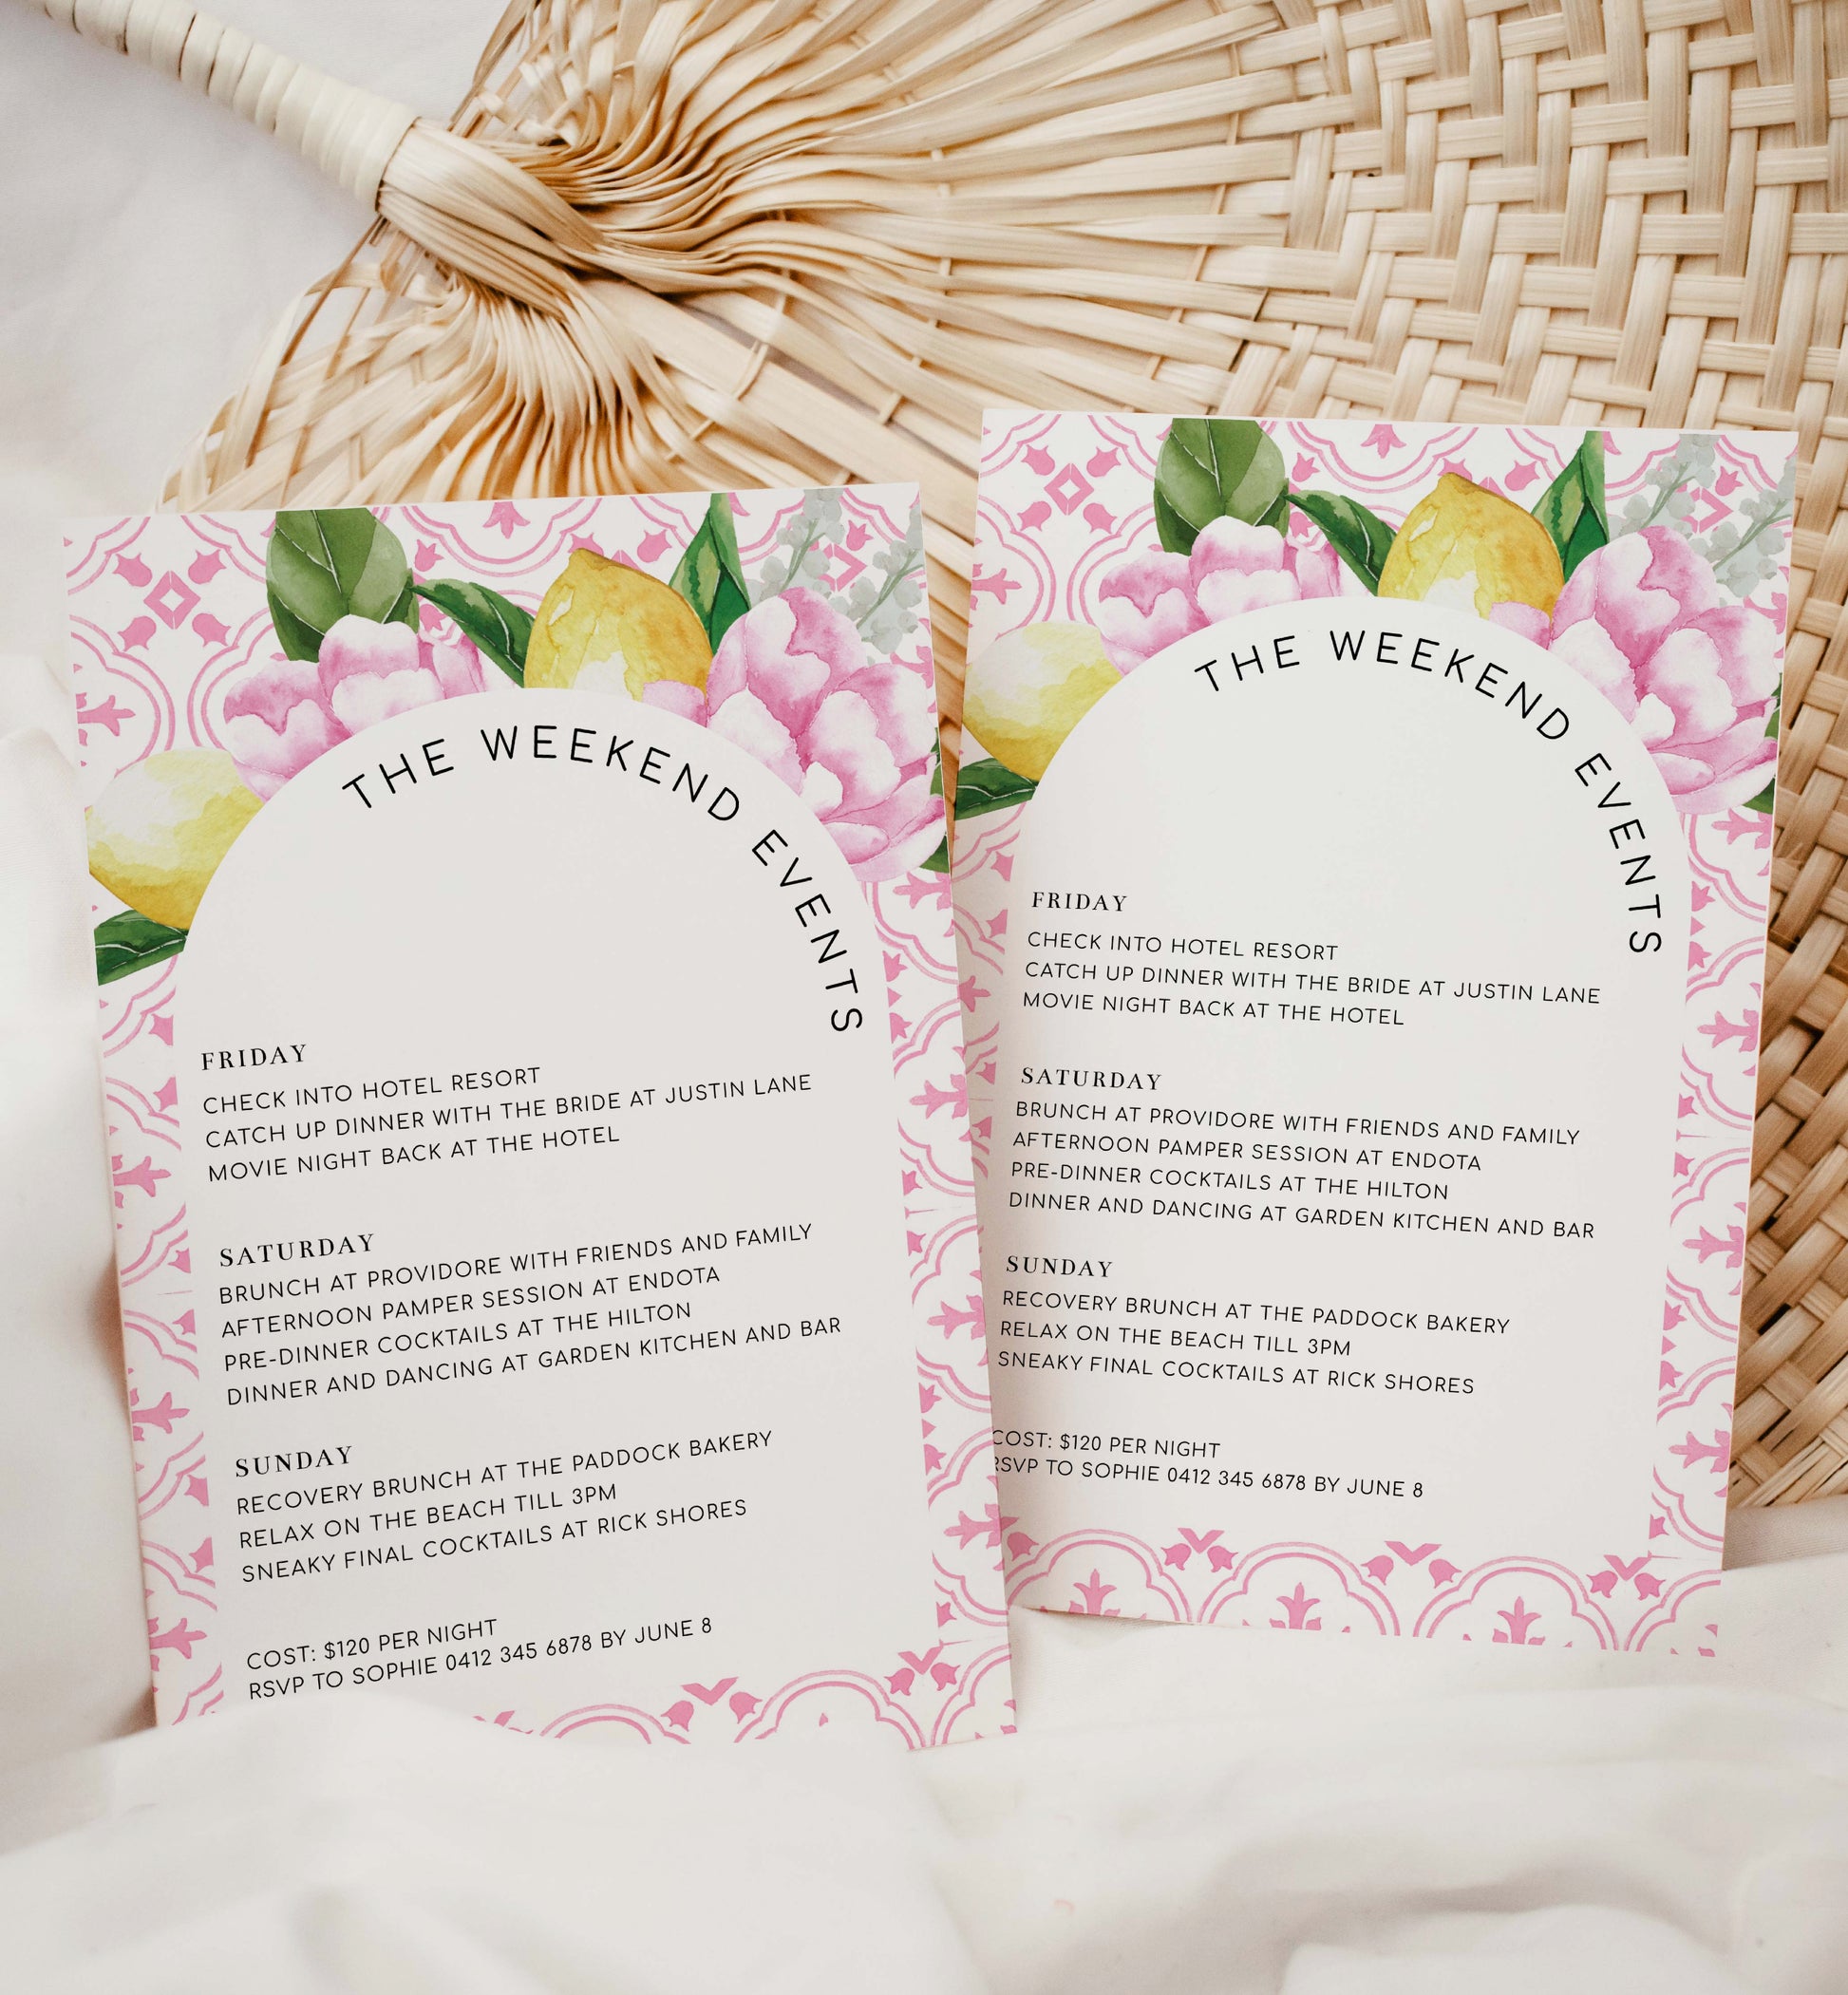 THE WEEKEND EVENTS
FRIDAY
CHECK INTO HOTEL RESORT
CATCH UP DINNER WITH THE BRIDE AT JUSTIN LANE
MOVIE NIGHT BACK AT THE HOTEL
SATURDAY
BRUNCH AT PROVIDORE WITH FRIENDS AND FAMILY
AFTERNOON PAMPER SESSION AT ENDOTA
PRE-DINNER COCKTAILS AT THE HILTON
DINNER AND DANCING AT GARDEN KITCHEN AND BAR
SUNDAY
RECOVERY BRUNCH AT THE PADDOCK BAKERY
RELAX ON THE BEACH TILL 3PM
SNEAKY FINAL COCKTAILS AT RICK SHORES
COST: $120 PER NIGHT
RSVP TO SOPHIE 0412 345 6878 BY JUNE 8
THE WEEKEND EVENTS
FRIDAY
CHECK INTO HOTEL RESORT
CATCH UP DINNER WITH THE BRIDE AT JUSTIN LANE
MOVIE NIGHT BACK AT THE HOTEL
SATURDAY
BRUNCH AT PROVIDORE WITH FRIENDS AND FAMILY
AFTERNOON PAMPER SESSION AT ENDOTA
PRE-DINNER COCKTAILS AT THE HILTON
DINNER AND DANCING AT GARDEN KITCHEN AND BAR
SUNDAY
RECOVERY BRUNCH AT THE PADDOCK BAKERY
RELAX ON THE BEACH TILL 3PM
SNEAKY FINAL COCKTAILS AT RICK SHORES
COST: $120 PER NIGHT
RSVP TO SOPHIE 0412 345 6878 BY JUNE 8